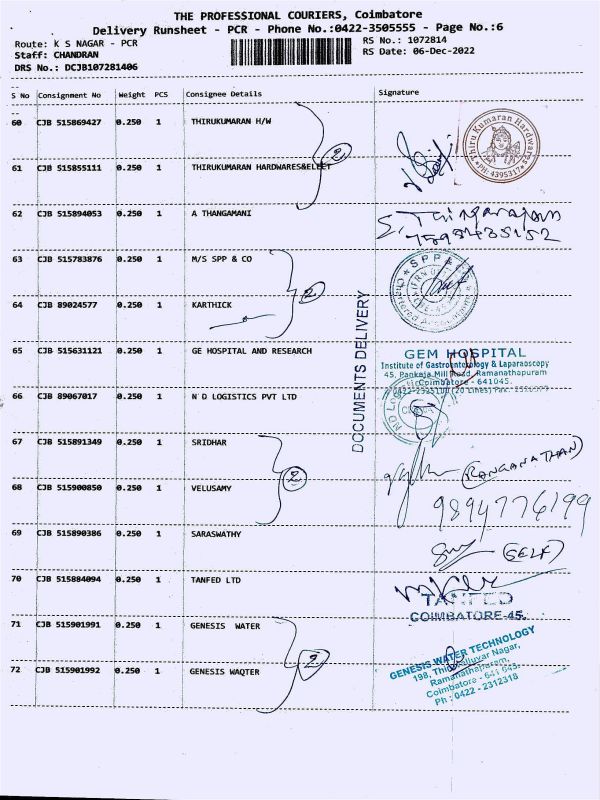 THE PROFESSIONAL COURIERS, Coimbatore
Delivery Runsheet - PCR - Phone No.:0422-3505555 - Page No.:6
Route: K S NAGAR - PCR
Staff: CHANDRAN
DRS No.: DCJB107281406
RS No.: 1072814
RS Date: 06-Dec-2022
S No Consignment No Weight PCS Consignee Details Signature
60 CJB 515869427 0.250 1 THIRUKUMARAN H/W
Thiru Kumaran Hardwares
PH: 4395317
2
61 CJB 515855111 0.250 1 THIRUKUMARAN HARDWARES&ELECT
62 CJB 515894053 0.250 1 A THANGAMANI
63 CJB 515783876 0.250 1 M/S SPP & CO
SPP
2
64 CJB 89024577 0.250 1 KARTHICK
DOCUMENTS DELIVERY
65 CJB 515631121 0.250 1 GE HOSPITAL AND RESEARCH
GEM HOSPITAL
Institute of Gastroenterology & Laparaoscopy
45, Pankaja Mill Road, Ramanathapuram
Coimbatore - 641045.
66 CJB 89067017 0.250 1 N D LOGISTICS PVT LTD
67 CJB 515891349 0.250 1 SRIDHAR
(RANGANATHAN)
2
68 CJB 515900850 0.250 1 VELUSAMY
9894776199
69 CJB 515890386 0.250 1 SARASWATHY
(SELF)
70 CJB 515884094 0.250 1 TANFED LTD
TANFED
COIMBATORE-45.
71 CJB 515901991 0.250 1 GENESIS WATER
GENESIS WATER TECHNOLOGY
198, Thiruvalluvar Nagar,
Ramanathapuram,
Coimbatore - 641 045.
Ph : 0422 - 2312318
2
72 CJB 515901992 0.250 1 GENESIS WAQTER